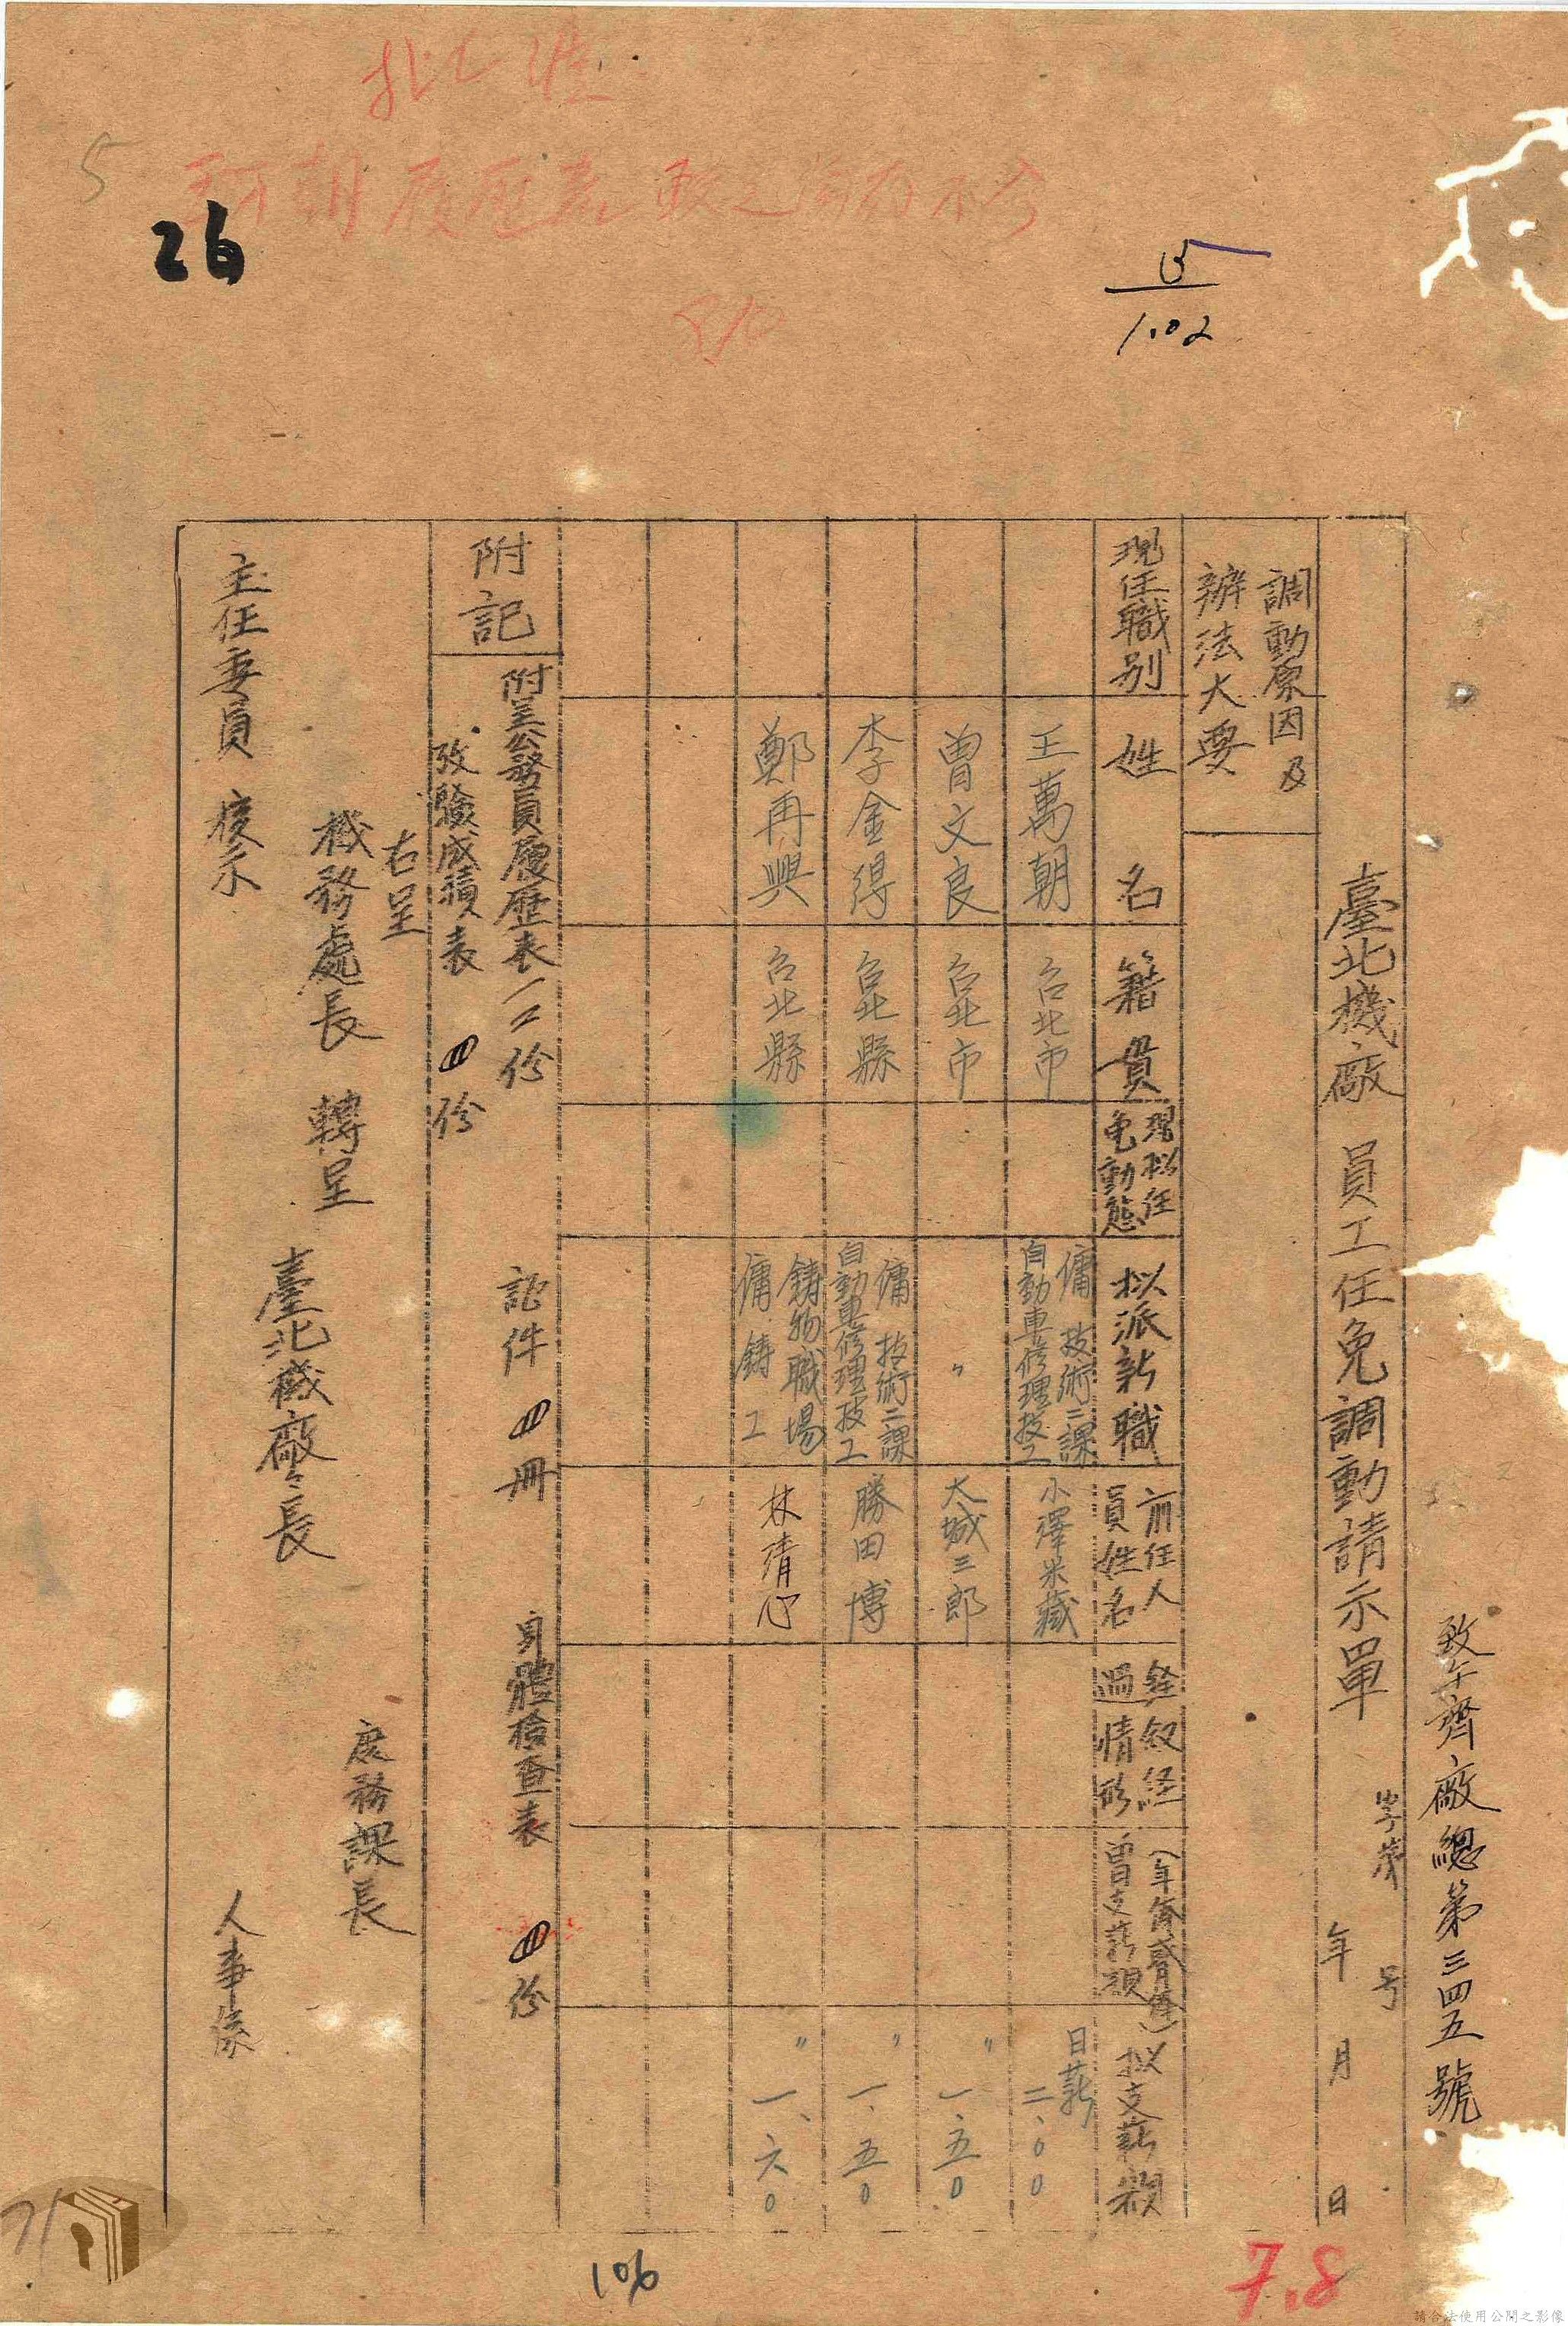 批准
王萬朝履歷表
5
26
15
1.02
致午齊廠總第三四五號
臺北機廠 員工任免調動請示單
字第 号
年 月 日
調動原因及
辦法大要
現任職別
姓 名
籍 貫
現拟任
免動態
拟派新職
前任人
員姓名
銓敘經
過情形
曾支薪額
拟支薪額
王萬朝
台北市
傭 技術二課
自動車修理技工
小澤米藏
日薪
二、00
曾文良
台北市
〃
大城三郎
〃
一、五0
李金得
台北縣
傭 技術二課
自動車修理技工
勝田博
〃
一、五0
鄭再興
台北縣
鑄物職場
傭 鑄工
林清心
〃
一、六0
附記
附呈公務員履歷表一工份 証件 冊 身體檢查表 份
攷驗成績表 份
右呈
機務處長 轉呈
庶務課長
臺北機廠廠長
主任委員 核示
人事係
106
7.8
71
請合法使用公開之影像